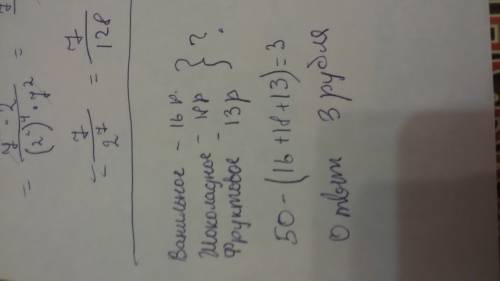 = y · 2 / (2⁻)⁴ · y² =
= 7 / 2⁷ = 7 / 128
Ванильное - 16 р.
Шоколадное - 18 р } ?
Фруктовое - 13 р
50 - (16 + 18 + 13) = 3
Ответ 3 рубля